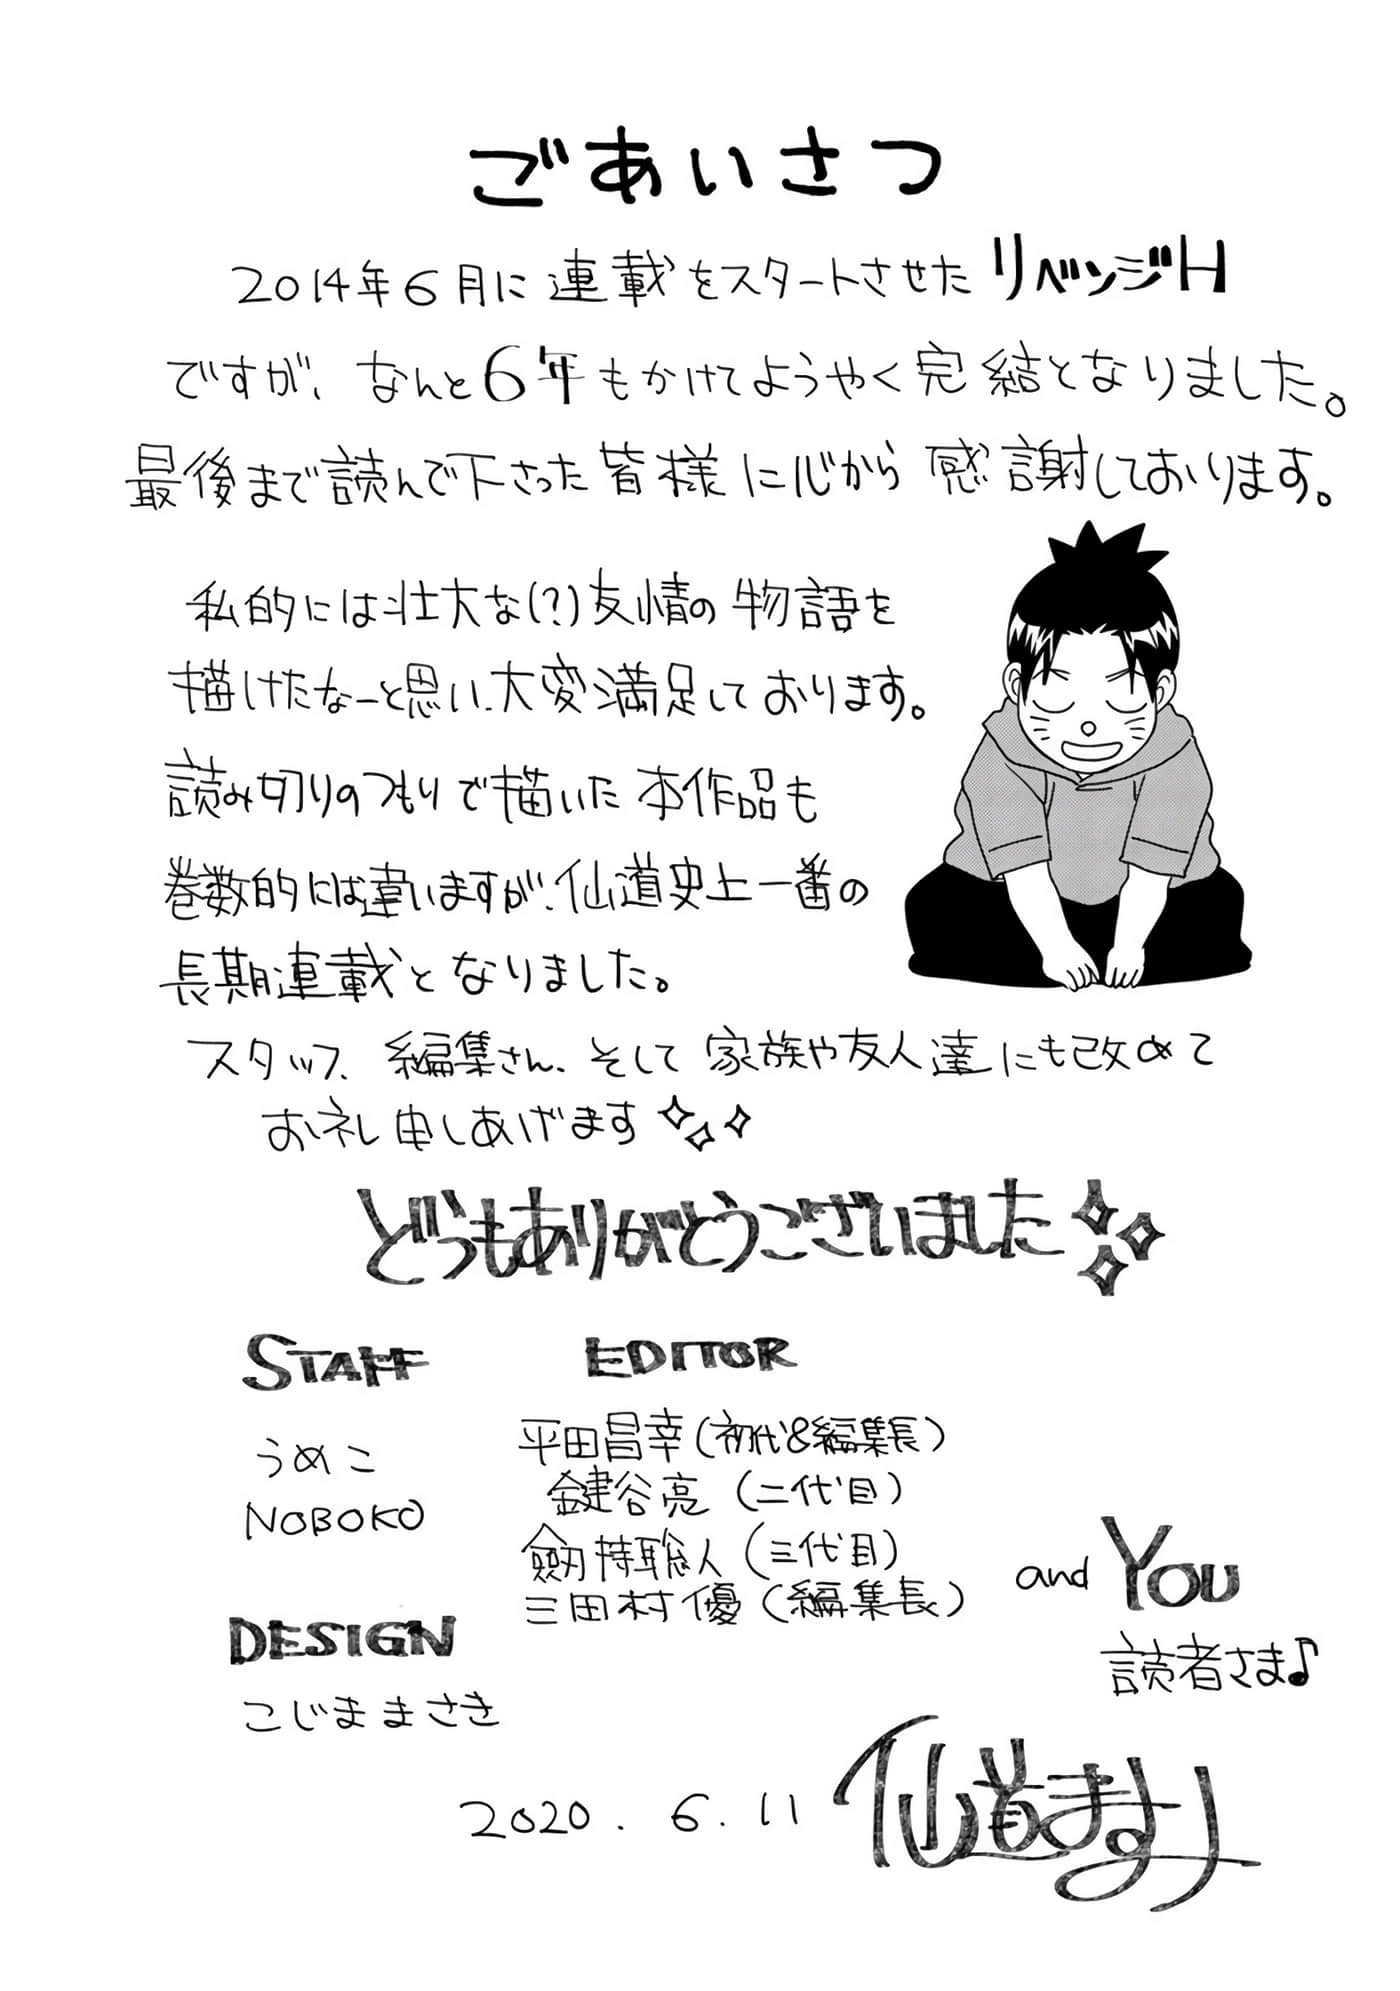 ごあいさつ
2014年6月に連載をスタートさせたリベンジH
ですが、なんと6年もかけてようやく完結となりました。
最後まで読んで下さった皆様に心から感謝しております。
私的には壮大な(?)友情の物語を
描けたなーと思い、大変満足しております。
読み切りのつもりで描いた本作品も
巻数的には違いますが、仙道史上一番の
長期連載となりました。
スタッフ、編集さん、そして家族や友人達にも改めて
お礼申しあげます
どうもありがとうございました
STAFF
うめこ
NOBOKO
EDITOR
平田昌幸(初代&編集長)
鍵谷亮(二代目)
劔持聡人(三代目)
三田村優(編集長)
and YOU
読者さま♪
DESIGN
こじままさき
2020.6.11
仙道ますみ